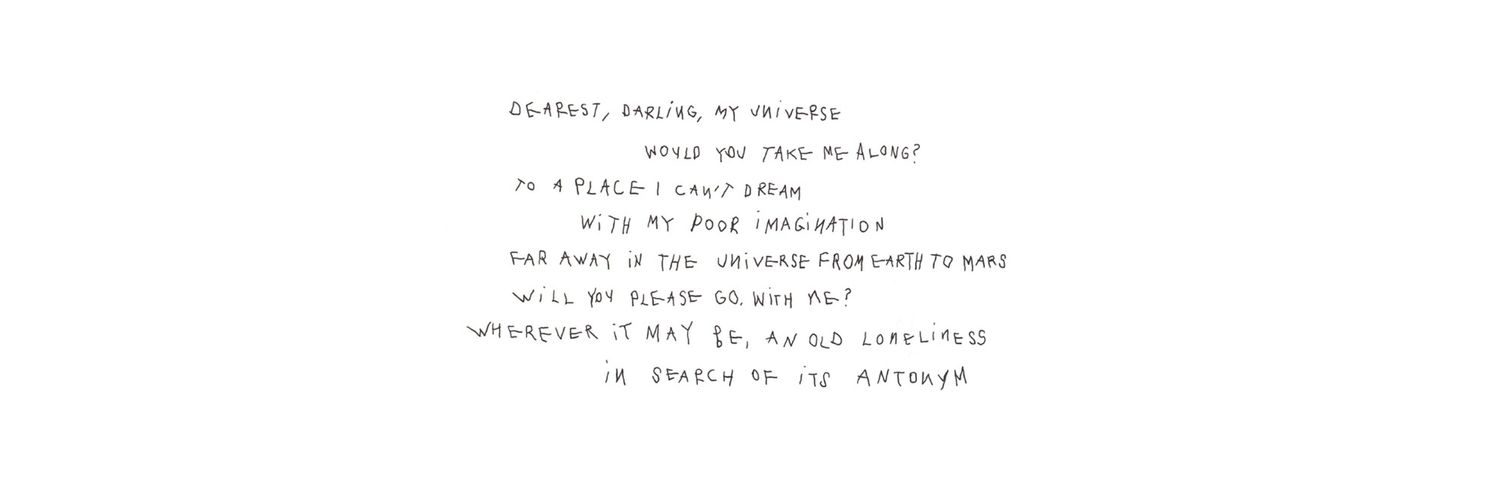 DEAREST, DARLING, MY UNIVERSE
WOULD YOU TAKE ME ALONG?
TO A PLACE I CAN'T DREAM
WITH MY POOR IMAGINATION
FAR AWAY IN THE UNIVERSE FROM EARTH TO MARS
WILL YOU PLEASE GO. WITH ME?
WHEREVER IT MAY BE, AN OLD LONELINESS
IN SEARCH OF ITS ANTONYM